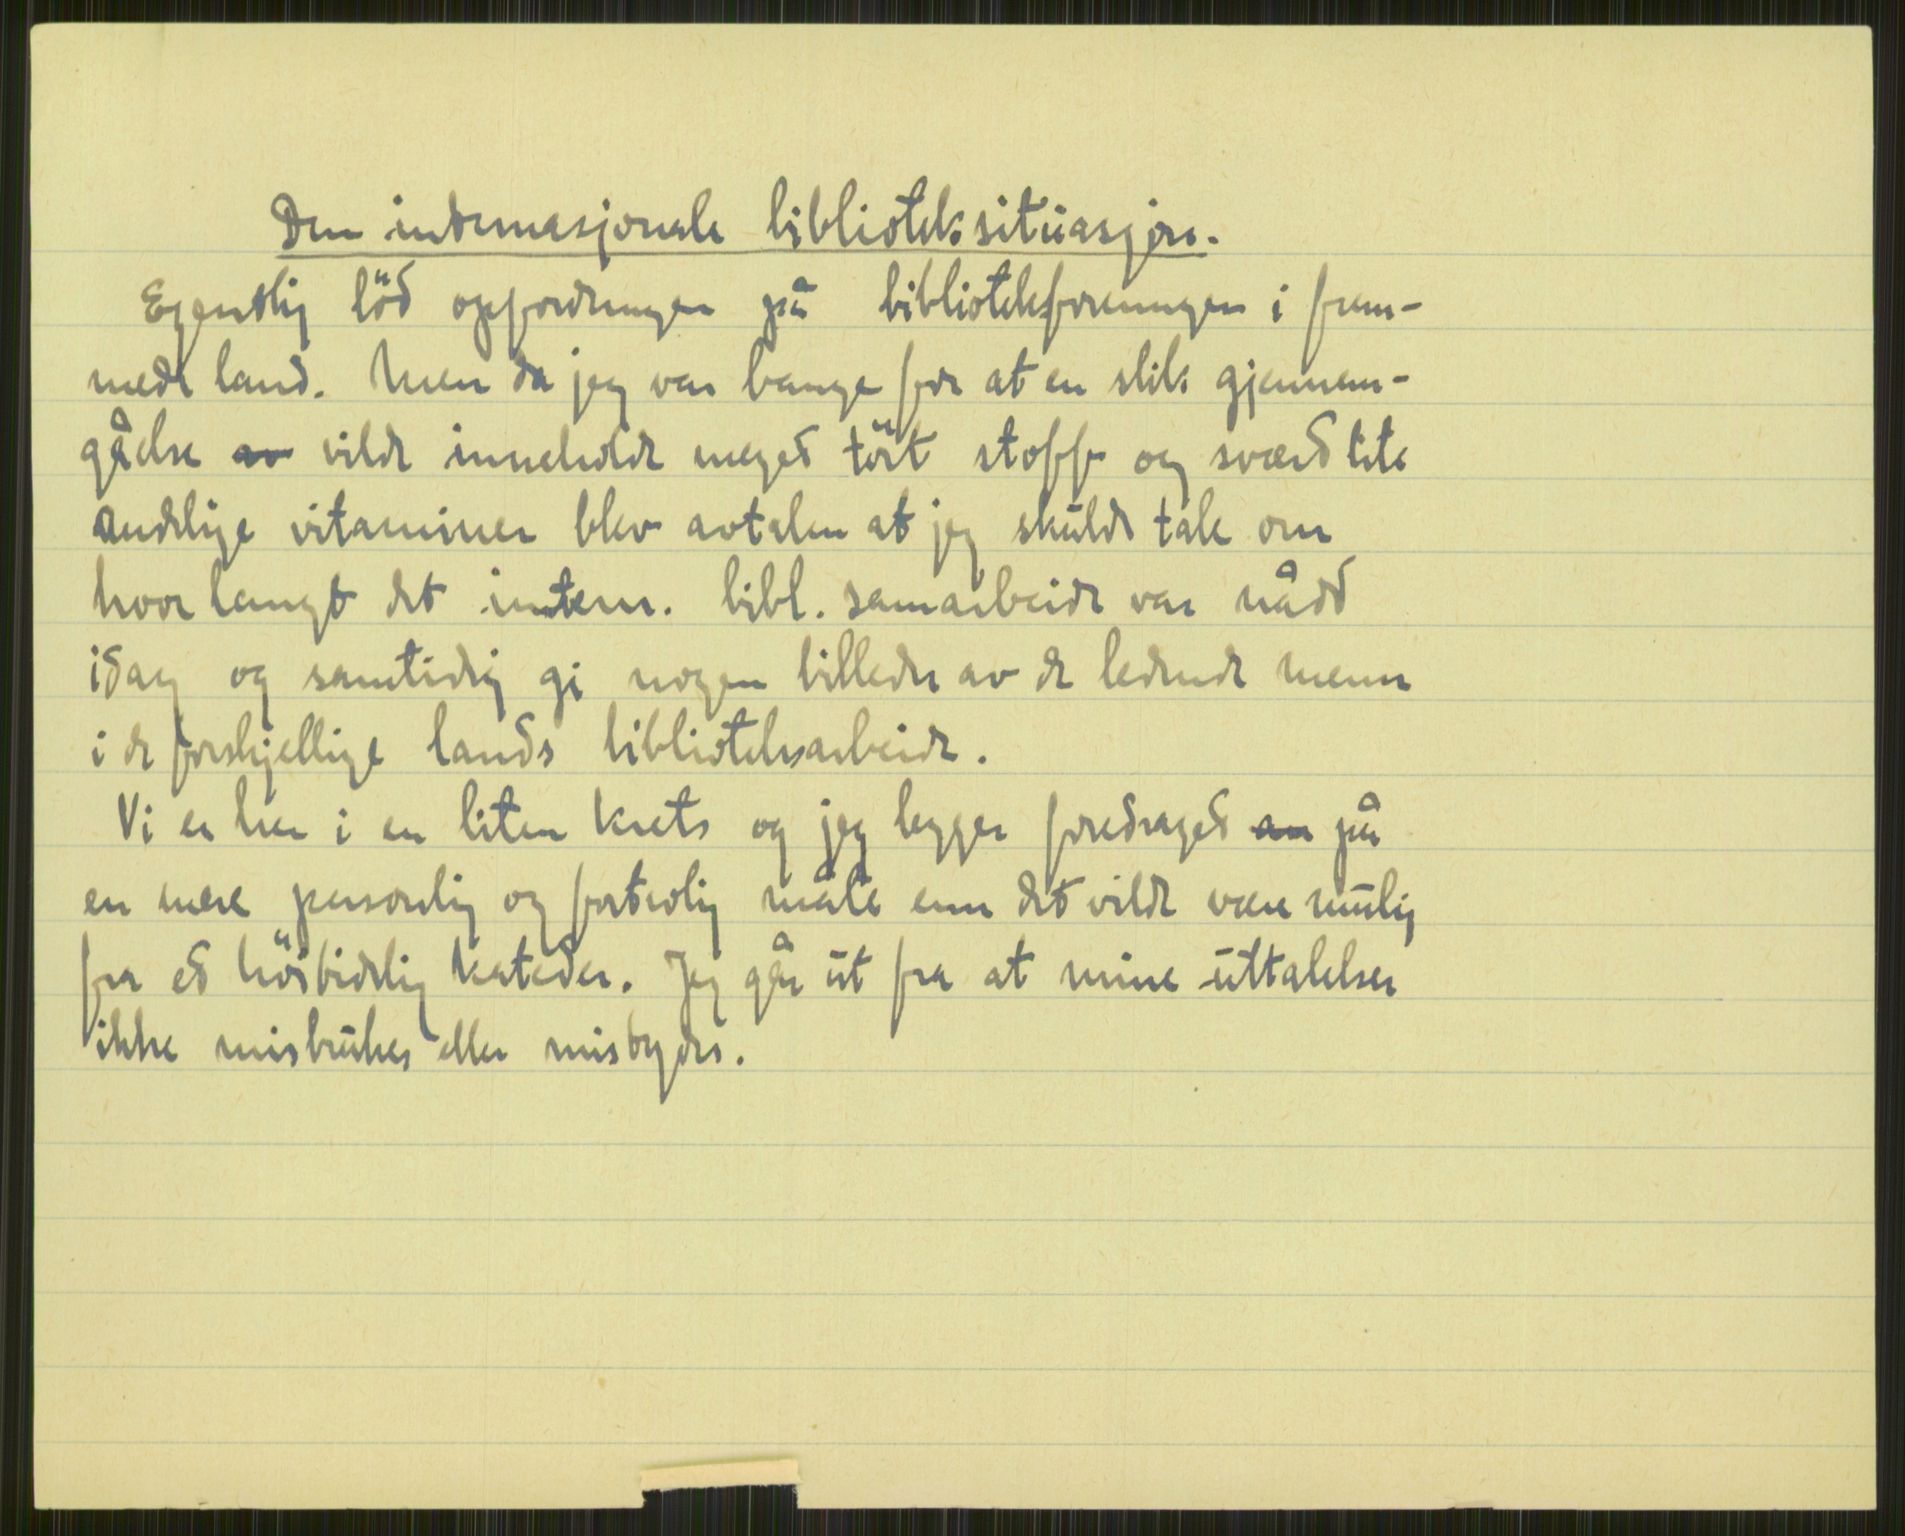 Den internasjonale biblioteksituasjon.
Egentlig löd oppfordringen på bibliotekforeningen i frem-
mede land. Men da jeg var bange for at en slik gjennem-
gåelse av vilde inneholde meget tört stoff og svært lite
andelige vitaminer blev avtalen at jeg skulde tale om
hvor langt det intern. bibl. samarbeide var nådd
idag og samtidig gi nogen billeder av de ledende menn
i de forskjellige lands biblioteksarbeide.
Vi er her i en liten krets og jeg legger foredraget an på
en mere personlig og fortrolig måte enn det vilde være mulig
fra et höitidelig kateder. Jeg går ut fra at mine uttalelser
ikke misbrukes eller mistydes.